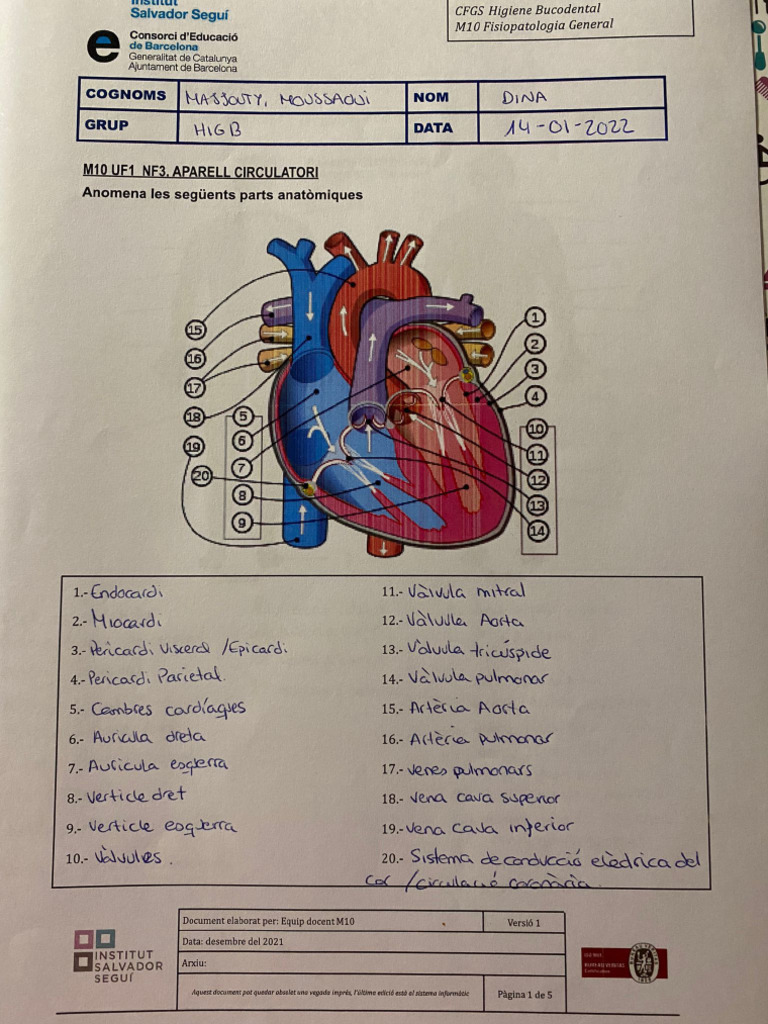 Institut
Salvador Seguí
Consorci d'Educació
de Barcelona
Generalitat de Catalunya
Ajuntament de Barcelona
CFGS Higiene Bucodental
M10 Fisiopatologia General
COGNOMS MAJJOUTY, MOUSSAOUI NOM DINA
GRUP HIGB DATA 14-01-2022
M10 UF1 NF3. APARELL CIRCULATORI
Anomena les següents parts anatòmiques
15
16
17
18
19
20
5
6
7
8
9
1
2
3
4
10
11
12
13
14
1.- Endocardi
2.- Miocardi
3.- Pericardi Visceral /Epicardi
4.- Pericardi Parietal.
5.- Cambres cardíaques
6.- Auriculla dreta
7.- Auricula esqerra
8.- Verticle dret
9.- Verticle esqerra
10.- Vàlvules.
11.- Vàlvula mitral
12.- Vàlvulla Aorta
13.- Vàlvula tricúspide
14.- Vàlvula pulmonar
15.- Artèria Aorta
16.- Artèria pulmonar
17.- venes pulmonars
18.- vena cava superior
19.- vena cava inferior
20.- Sistema de conducció elèctrica del
cor /circulació coronària.
INSTITUT
SALVADOR
SEGUÍ
Document elaborat per: Equip docent M10 Versió 1
Data: desembre del 2021
Arxiu:
Aquest document pot quedar obsolet una vegada imprès, l'última edició està al sistema informàtic Pàgina 1 de 5